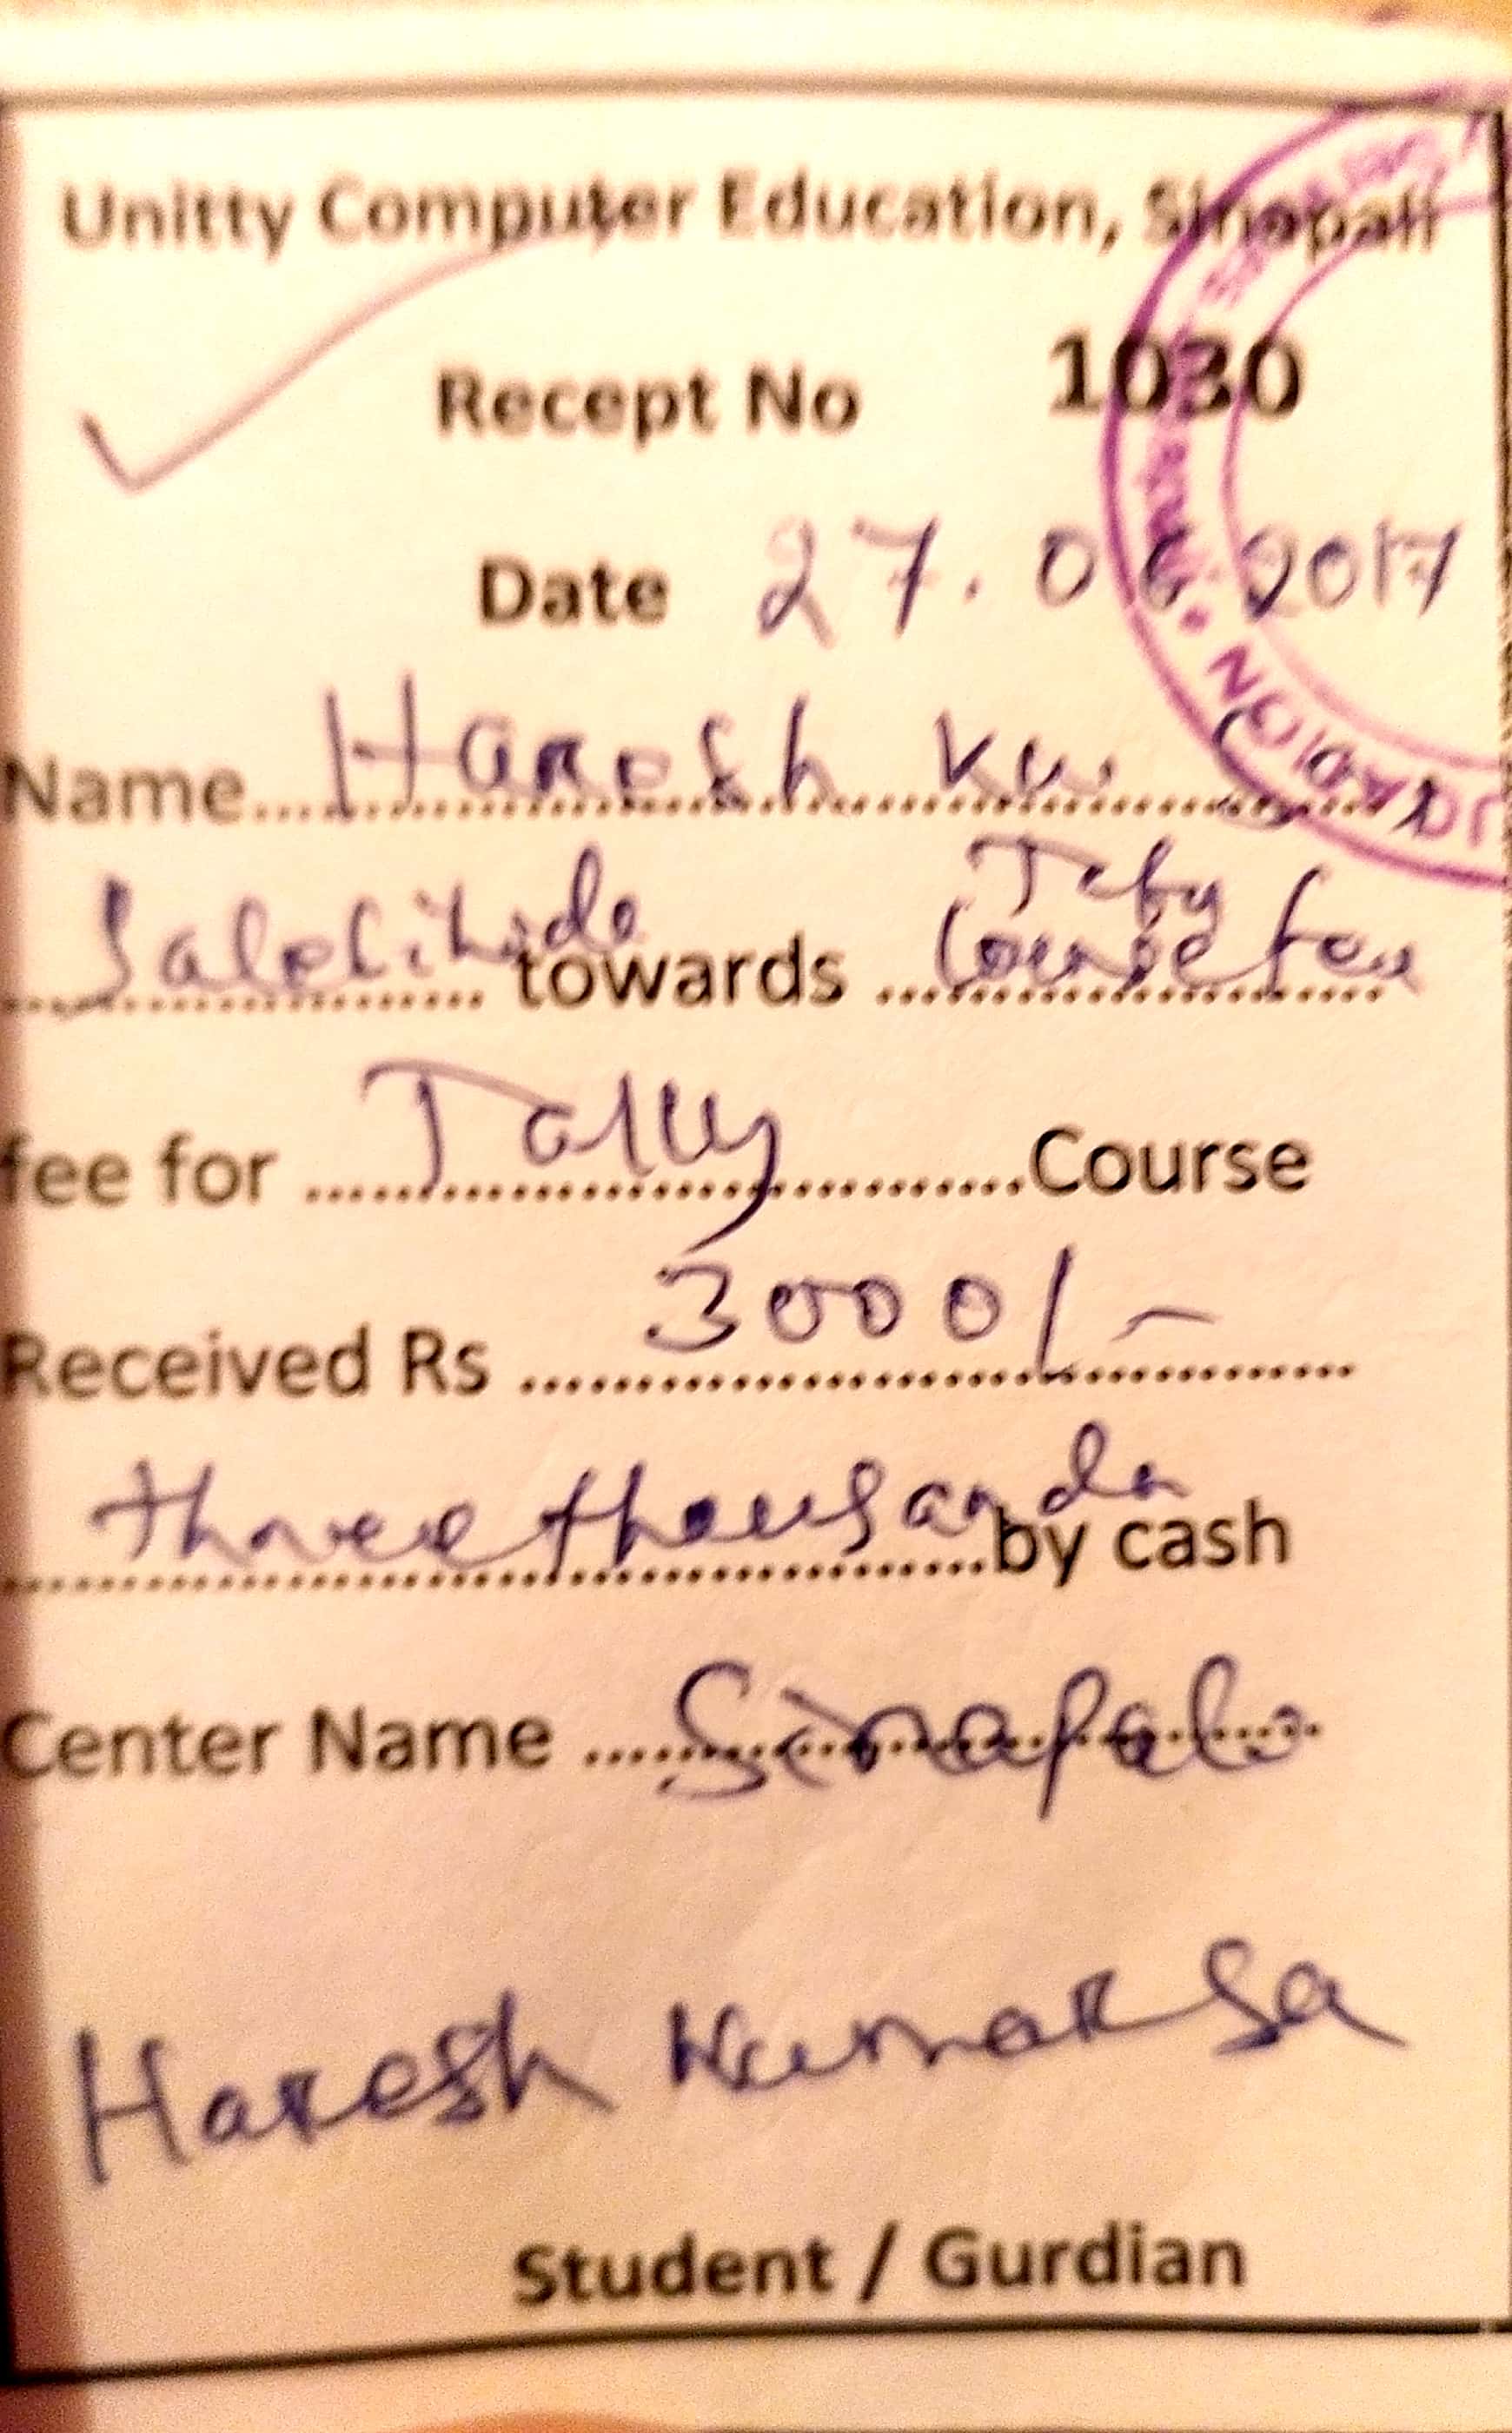 Unitty Computer Education, Sinapali
Recept No 1030
Date 27.06.2017
Name Haresh Ku.
towards Course fee
fee for Tally Course
Received Rs 3000/-
three thousand by cash
Center Name Sinapali
Haresh Kumar Sa
Student / Gurdian